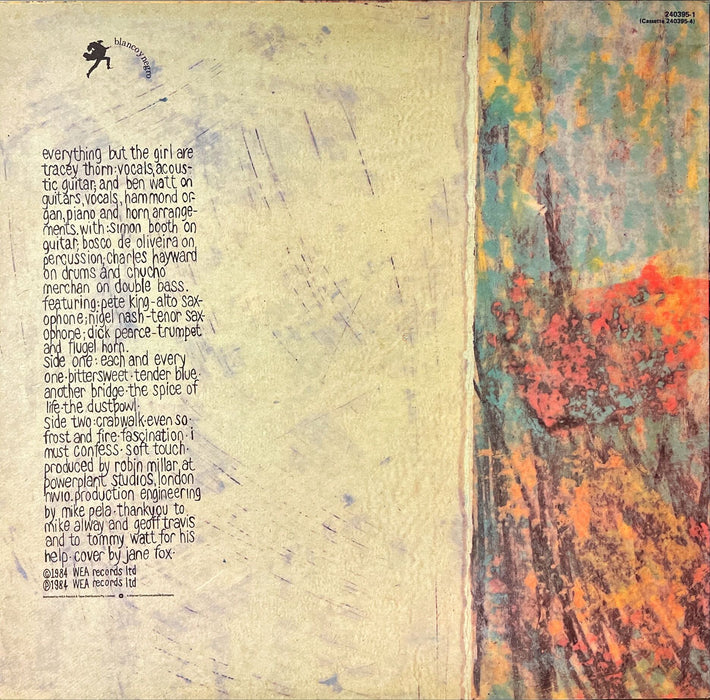 240395-1
(Cassette 240395-4)
blancoynegro
everything but the girl are
tracey thorn:vocals,acous-
tic guitar; and ben watt on
guitars,vocals,hammond or-
gan,piano and horn arrange-
ments.with:simon booth on
guitar; bosco de oliveira on
percussion;charles hayward
on drums and chucho
merchan on double bass.
featuring:pete king-alto sax-
ophone;nigel nash-tenor sax-
ophone;dick pearce-trumpet
and flugel horn.
side one:each and every
one·bittersweet·tender blue·
another bridge·the spice of
life·the dustbowl·
side two:crabwalk·even so·
frost and fire·fascination·i
must confess·soft touch·
produced by robin millar,at
powerplant studios,london
nw10.production engineering
by mike pela·thankyou to
mike alway and geoff travis
and to tommy watt for his
help·cover by jane fox·
©1984 WEA records ltd
℗1984 WEA records ltd